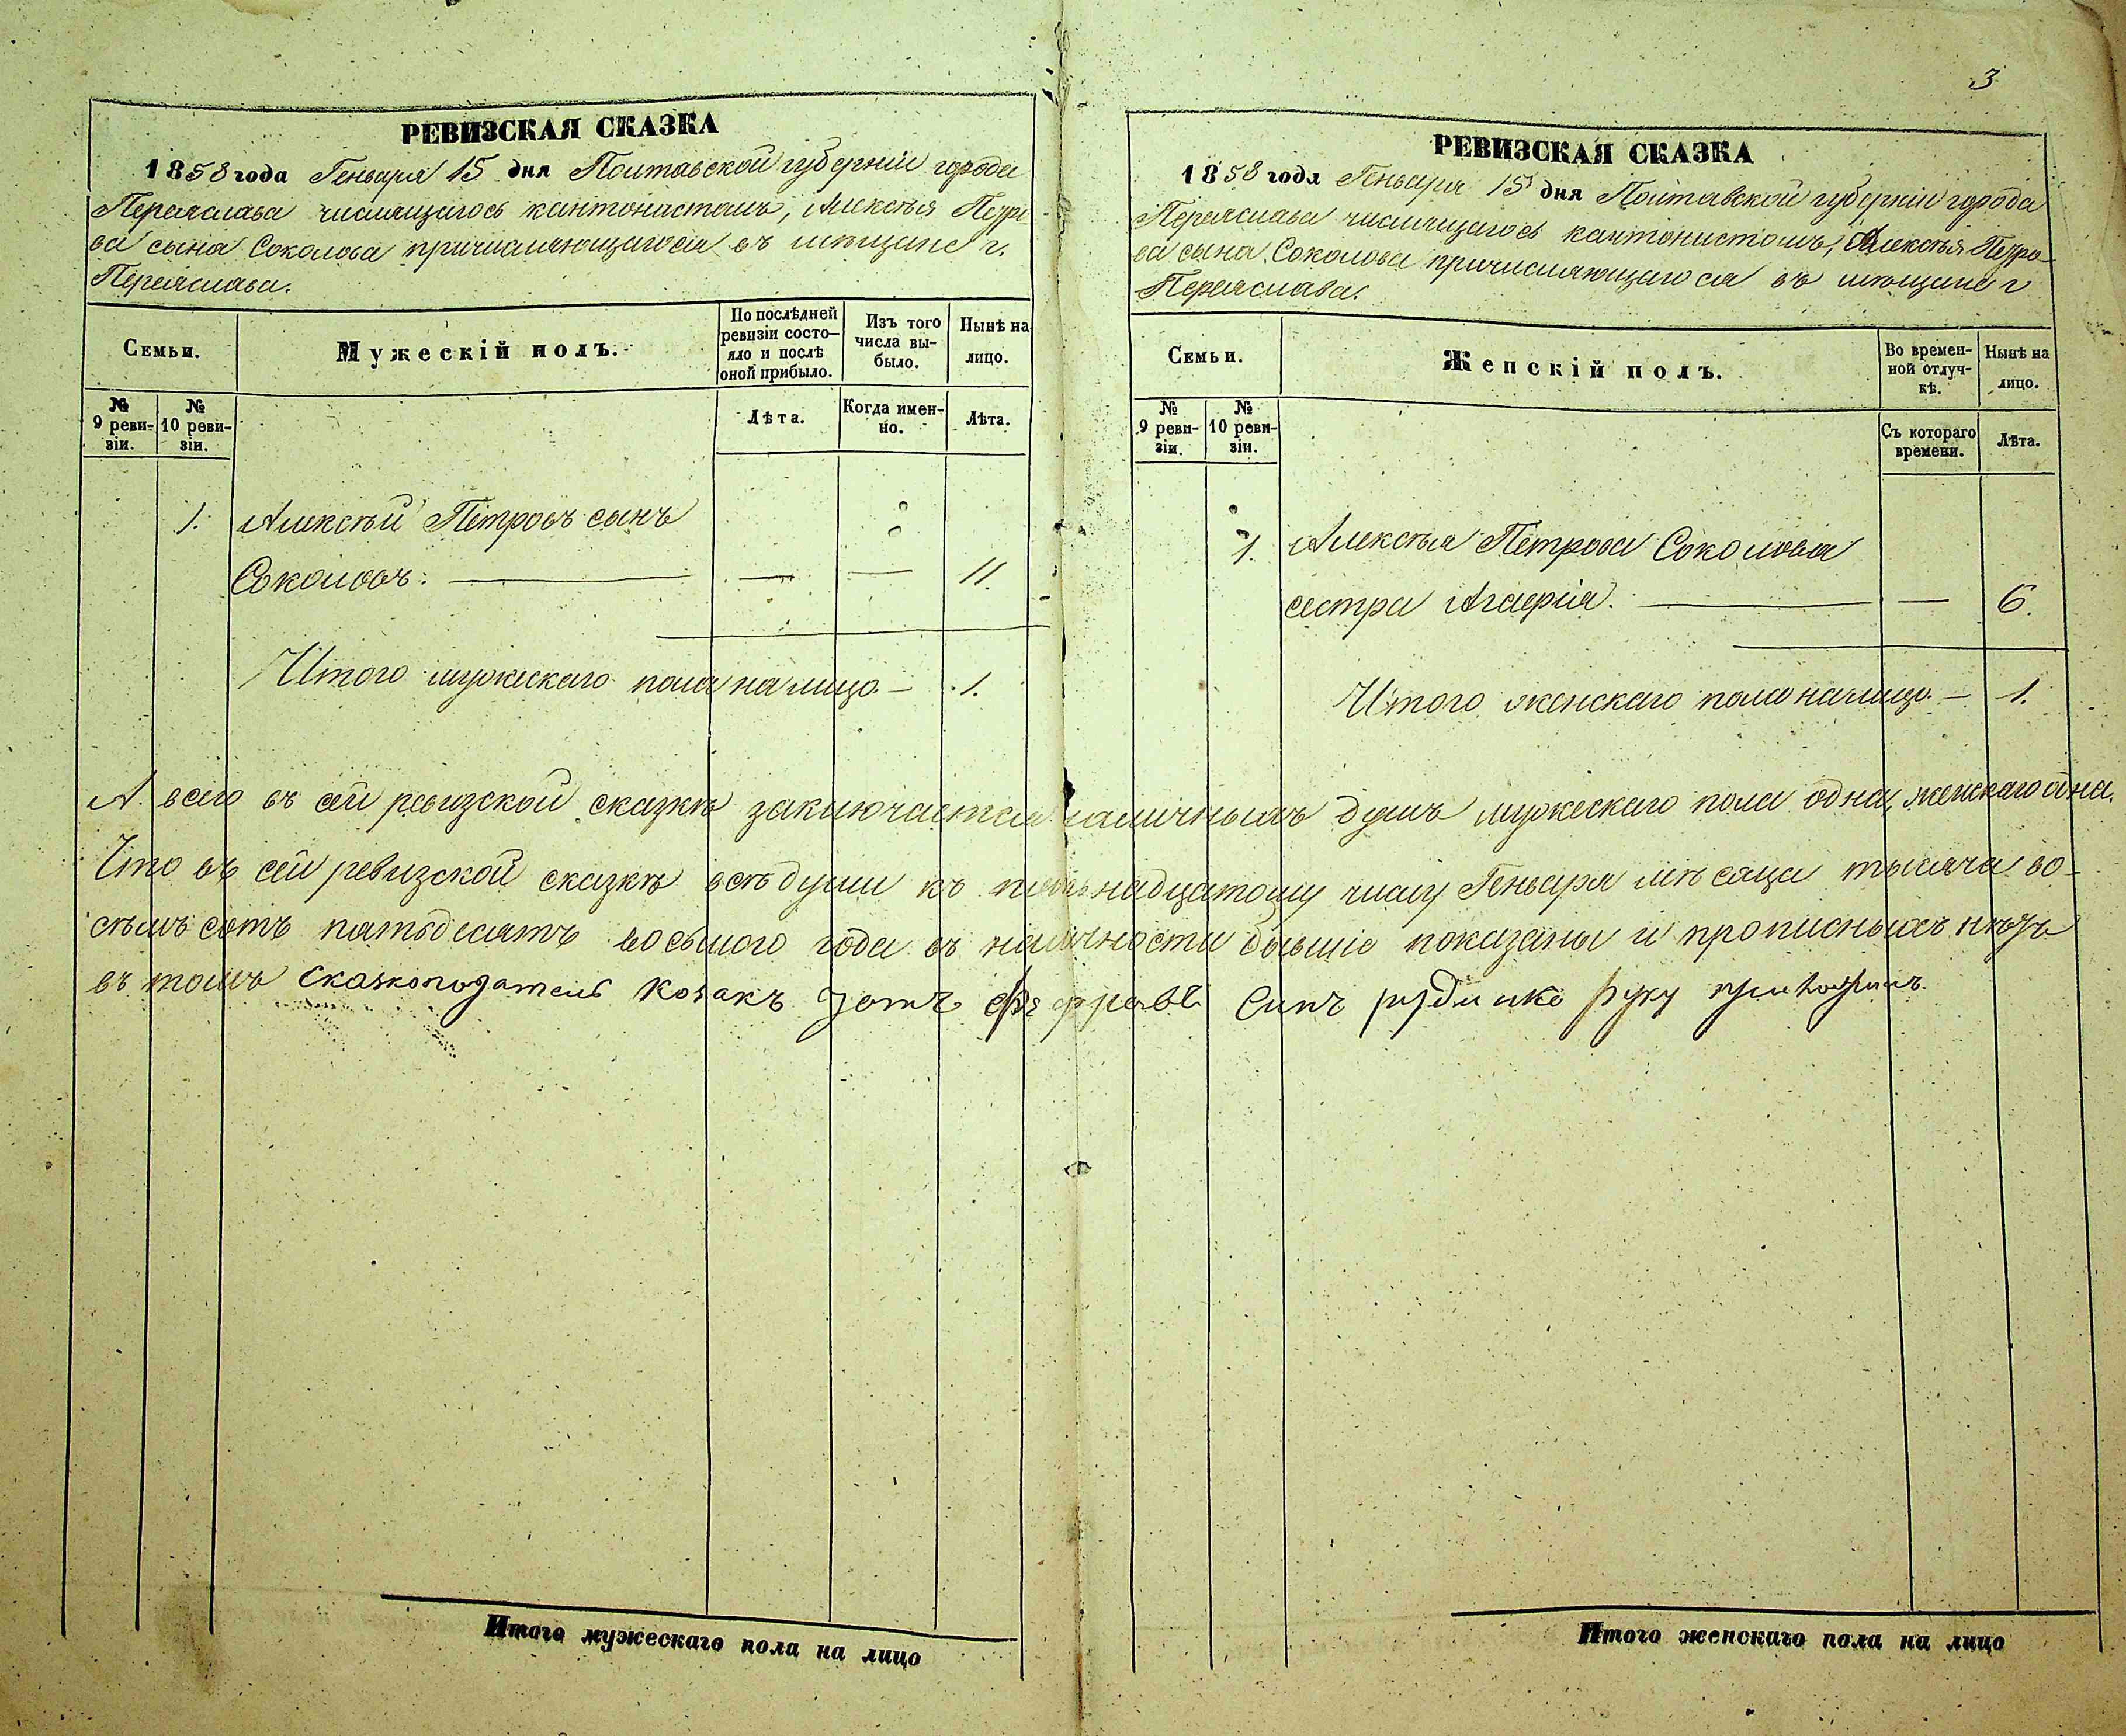 3
РЕВИЗСКАЯ СКАЗКА
1858 года Генваря 15 дня Полтавской губерніи города
Переяслава числящагось кантонистомъ, Алексѣя Петро-
ва сына Соколова причисляющагося въ мѣщане г.
Переяслава.
Семьи.
Мужескій полъ.
По послѣдней ревизіи состо-
яло и послѣ оной прибыло.
Изъ того числа вы-
было.
Нынѣ на лицо.
№ 9 реви-
зіи.
№ 10 реви-
зіи.
Лѣта.
Когда имен-
но.
Лѣта.
1. Алексѣй Петровъ сынъ
Соколовъ. — — — 11
Итого мужескаго пола на лицо — 1.
РЕВИЗСКАЯ СКАЗКА
1858 года Генваря 15 дня Полтавской губерніи города
Переяслава числящагось кантонистомъ, Алексѣя Петро-
ва сына Соколова причисляющагося въ мѣщане г
Переяслава.
Семьи.
Женскій полъ.
Во времен-
ной отлуч-
кѣ.
Нынѣ на лицо.
№ 9 реви-
зіи.
№ 10 реви-
зіи.
Съ котораго времени.
Лѣта.
1. Алексѣя Петрова Соколова
сестра Агафія. — — 6.
Итого женскаго пола на лицо — 1.
А всего въ сей ревизской сказкѣ заключается наличныхъ душъ мужескаго пола одна, женскаго одна.
Что въ сей ревизской сказкѣ всѣ души къ пятьнадцатому числу Генваря мѣсяца тысяча во-
сѣмъ сотъ пятьдесятъ восьмого года въ наличности бывшіе показаны и прописныхъ нѣтъ
въ томъ сказкоподатель козакъ руку приложилъ
Итого мужескаго пола на лицо
Итого женскаго пола на лицо